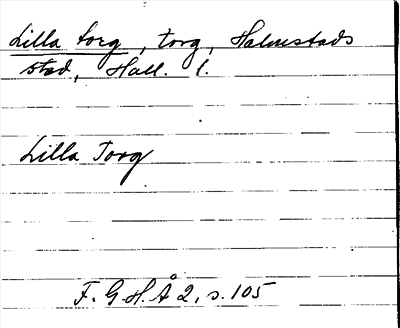 Lilla torg, torg, Halmstads
stad, Hall. l.
Lilla Torg
F.G.H.Å 2, s. 105